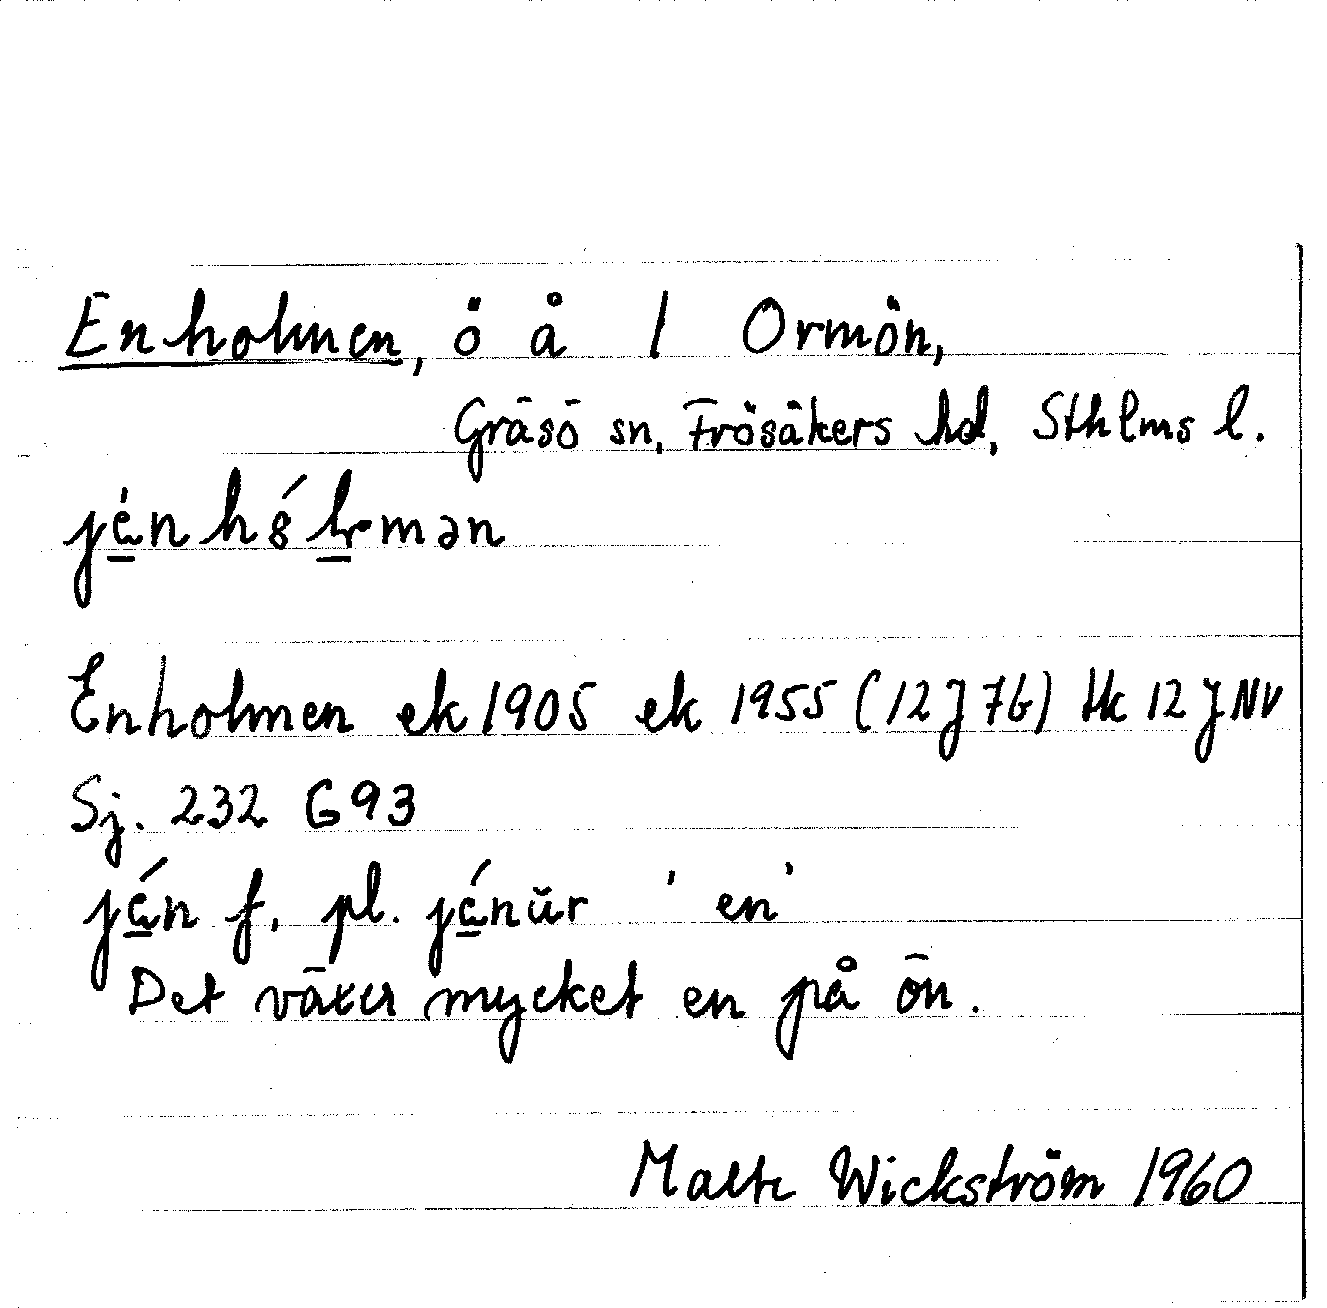 Enholmen, ö å 1 Ormön,
Gräsö sn, Frösåkers hd, Sthlms l.
jénhólmən
Enholmen ek 1905 ek 1955 (12J7b) tk 12JNV
Sj. 232 G93
jén f, pl. jénŭr 'en'
Det växer mycket en på ön.
Malte Wickström 1960